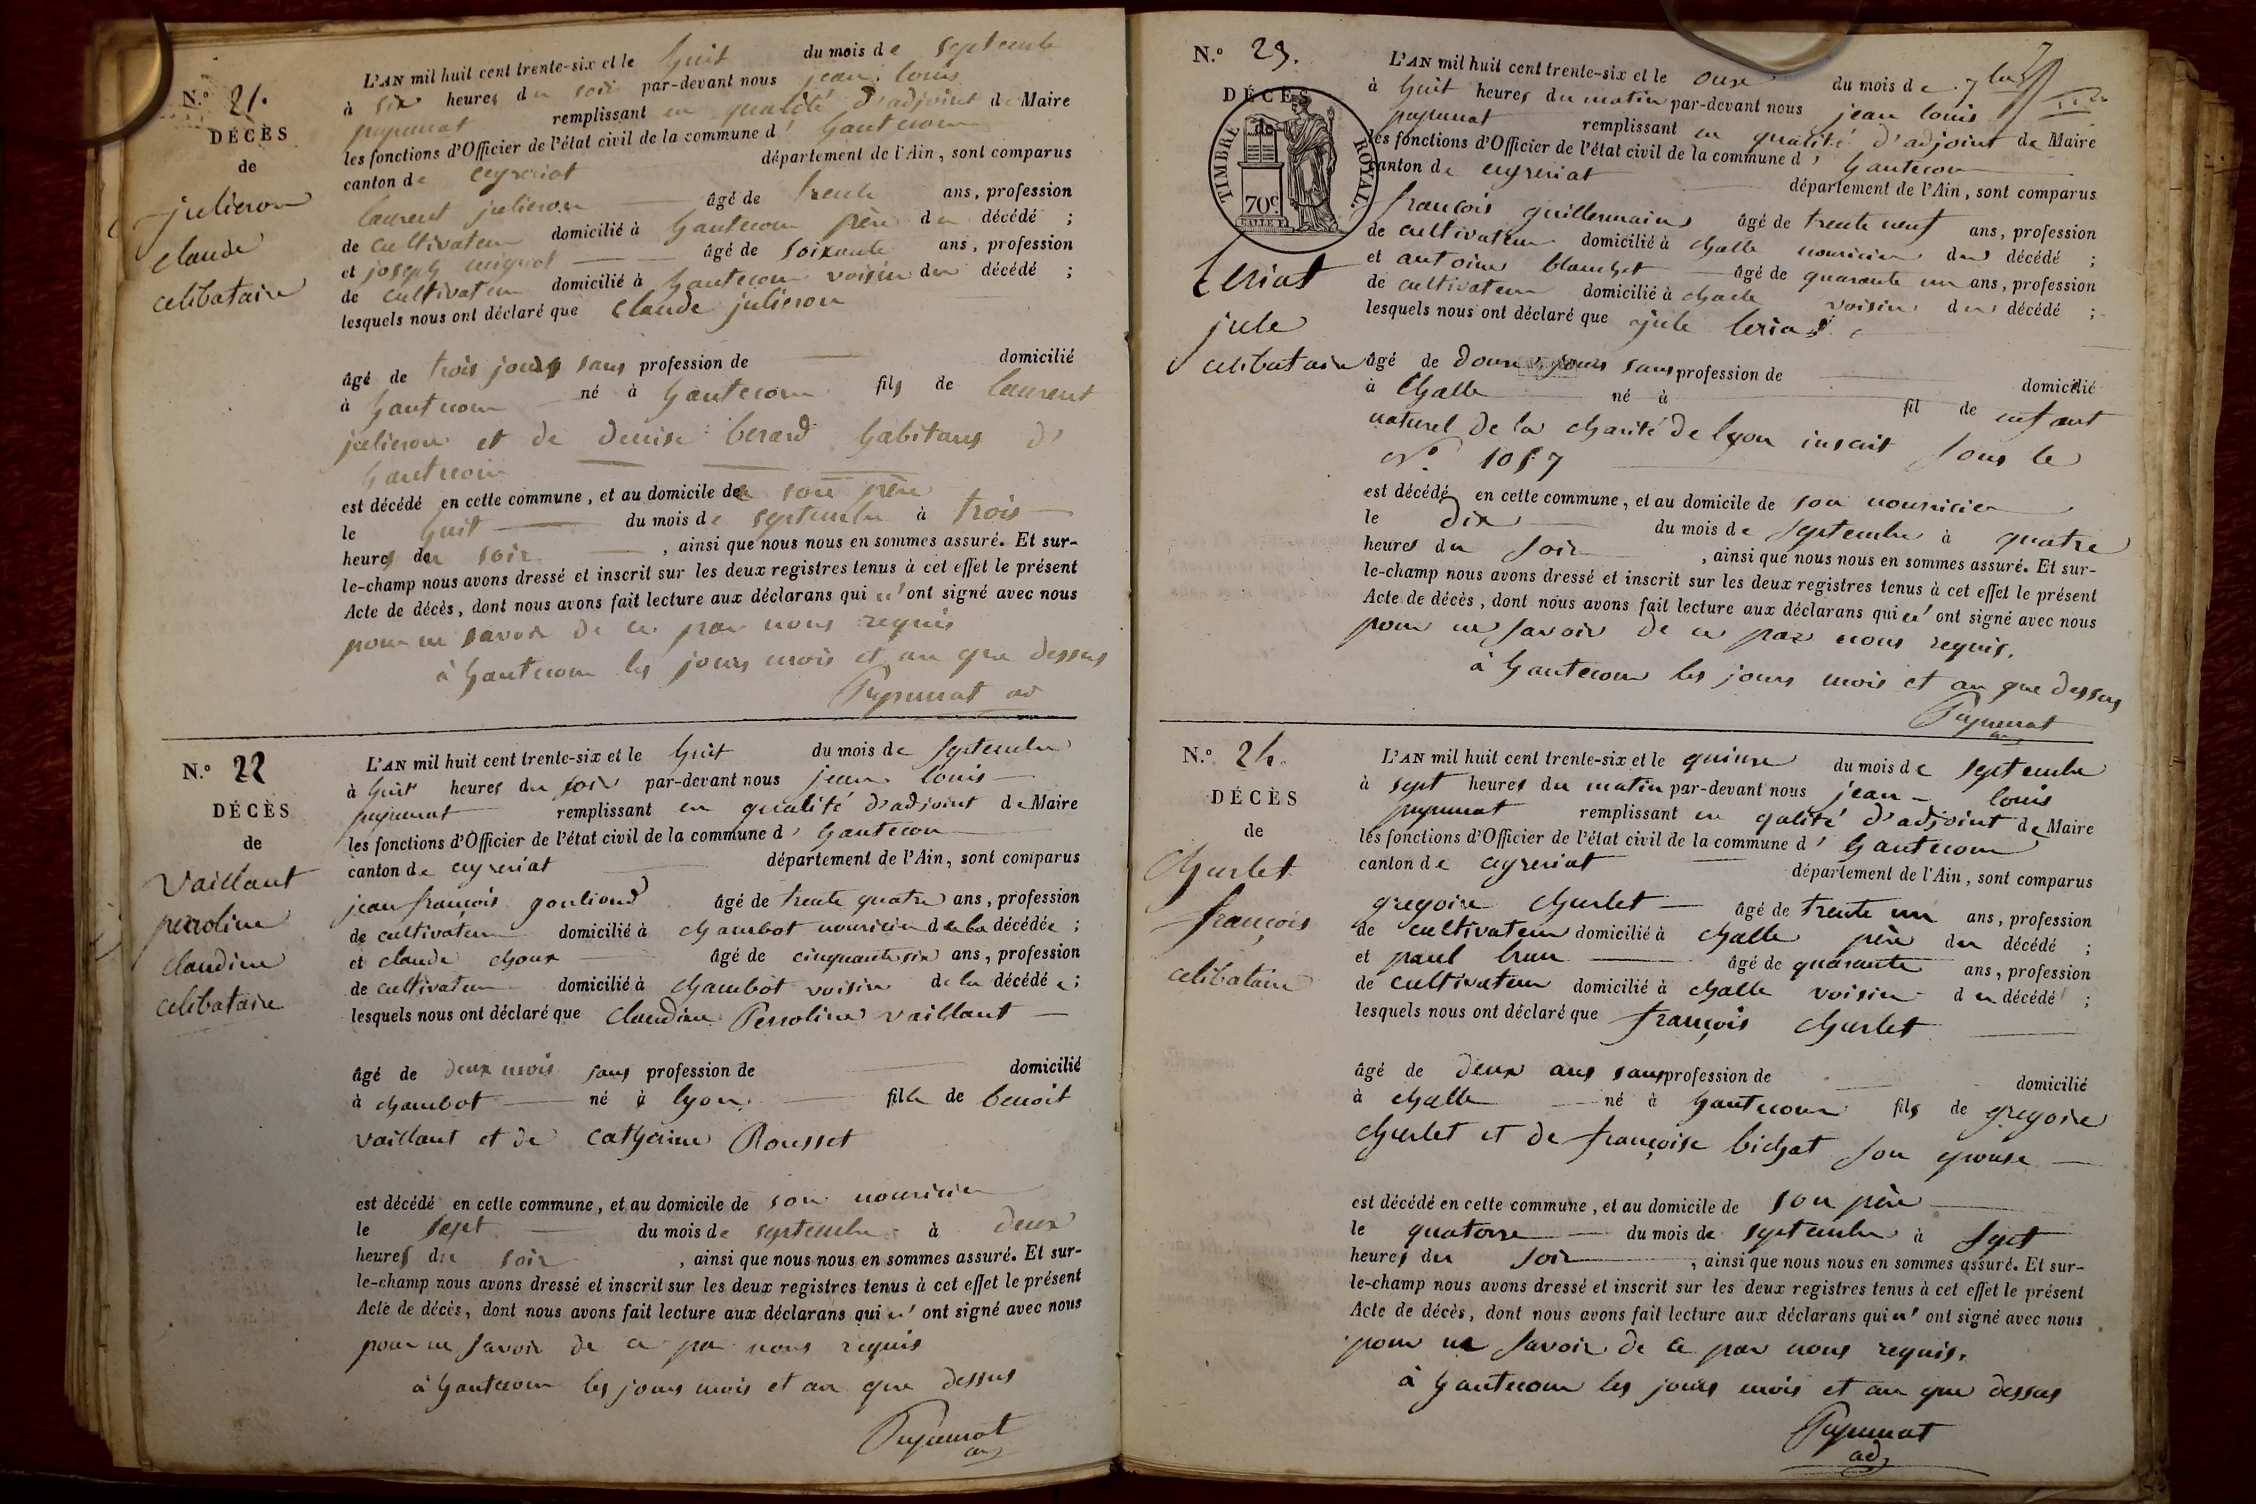 N.º 21.
DÉCÈS
de
julieron
claude
celibataire
L'AN mil huit cent trente-six et le huit du mois de septembre
à six heures du soir par-devant nous jean louis
puyunat remplissant en qualité d'adjoint de Maire
les fonctions d'Officier de l'état civil de la commune d' hautecour
canton de ceyzeriat département de l'Ain, sont comparus
laurent julieron âgé de trente ans, profession
de cultivateur domicilié à hautecour père du décédé ;
et joseph mignot âgé de soixante ans, profession
de cultivateur domicilié à hautecour voisin du décédé ;
lesquels nous ont déclaré que Claude julieron
âgé de trois jours sans profession de domicilié
à hautecour né à hautecour fils de laurent
julieron et de denise berard habitans d'
hautecour
est décédé en cette commune, et au domicile de son père
le huit du mois de septembre à trois
heures du soir , ainsi que nous nous en sommes assuré. Et sur-
le-champ nous avons dressé et inscrit sur les deux registres tenus à cet effet le présent
Acte de décès, dont nous avons fait lecture aux déclarans qui n'ont signé avec nous
pour ne savoir de ce par nous requis
à hautecour les jours mois et an que dessus
ad
N.º 22
DÉCÈS
de
Vaillant
perroline
claudine
celibataire
L'AN mil huit cent trente-six et le huit du mois de septembre
à huit heures du soir par-devant nous jean louis
remplissant en qualité d'adjoint de Maire
les fonctions d'Officier de l'état civil de la commune d' hautecour
canton de ceyzeriat département de l'Ain, sont comparus
jean françois goulioud âgé de trente quatre ans, profession
de cultivateur domicilié à chambot nouricier de la décédée ;
et claude choux âgé de cinquante six ans, profession
de cultivateur domicilié à chambot voisin de la décédée ;
lesquels nous ont déclaré que Claudine Perroline vaillant
âgé de deux mois sans profession de domicilié
à chambot né à lyon fille de benoit
vaillant et de catherine Rousset
est décédé en cette commune, et au domicile de son nouricier
le sept du mois de septembre à deux
heures du soir , ainsi que nous nous en sommes assuré. Et sur-
le-champ nous avons dressé et inscrit sur les deux registres tenus à cet effet le présent
Acte de décès, dont nous avons fait lecture aux déclarans qui n'ont signé avec nous
pour ne savoir de ce par nous requis
à hautecour les jours mois et an que dessus
N.º 23.
DÉCÈS
de
TIMBRE ROYAL.
70c
leriat
jule
celibataire
L'AN mil huit cent trente-six et le onze du mois de 7bre
à huit heures du matin par-devant nous jean louis
remplissant en qualité d'adjoint de Maire
les fonctions d'Officier de l'état civil de la commune d' hautecour
canton de ceyzeriat département de l'Ain, sont comparus
françois guillermain âgé de trente neuf ans, profession
de cultivateur domicilié à challe nouricier du décédé ;
et antoine blanchet âgé de quarante un ans, profession
de cultivateur domicilié à challe voisin du décédé ;
lesquels nous ont déclaré que jule leriat
âgé de jours sans profession de domicilié
à Challe né à fil de enfant
naturel de la charité de lyon inscrit sous le
Nº 1057
est décédé en cette commune, et au domicile de son nourricier
le dix du mois de septembre à quatre
heures du soir , ainsi que nous nous en sommes assuré. Et sur-
le-champ nous avons dressé et inscrit sur les deux registres tenus à cet effet le présent
Acte de décès, dont nous avons fait lecture aux déclarans qui n'ont signé avec nous
pour ne savoir de ce par nous requis.
à hautecour les jours mois et an que dessus
N.º 24.
DÉCÈS
de
Churlet
françois
celibataire
L'AN mil huit cent trente-six et le quinze du mois de septembre
à sept heures du matin par-devant nous jean louis
remplissant en qalité d'adjoint de Maire
les fonctions d'Officier de l'état civil de la commune d' hautecour
canton de ceyzeriat département de l'Ain, sont comparus
gregoire churlet âgé de trente un ans, profession
de cultivateur domicilié à challe père du décédé ;
et paul brun âgé de quarante ans, profession
de cultivateur domicilié à challe voisin du décédé ;
lesquels nous ont déclaré que françois churlet
âgé de deux ans sans profession de domicilié
à challe né à hautecour fils de gregoire
churlet et de françoise bichat son epouse
est décédé en cette commune, et au domicile de son père
le quatorze du mois de septembre à sept
heures du soir , ainsi que nous nous en sommes assuré. Et sur-
le-champ nous avons dressé et inscrit sur les deux registres tenus à cet effet le présent
Acte de décès, dont nous avons fait lecture aux déclarans qui n'ont signé avec nous
pour ne savoir de ce par nous requis.
à hautecour les jours mois et an que dessus
adj